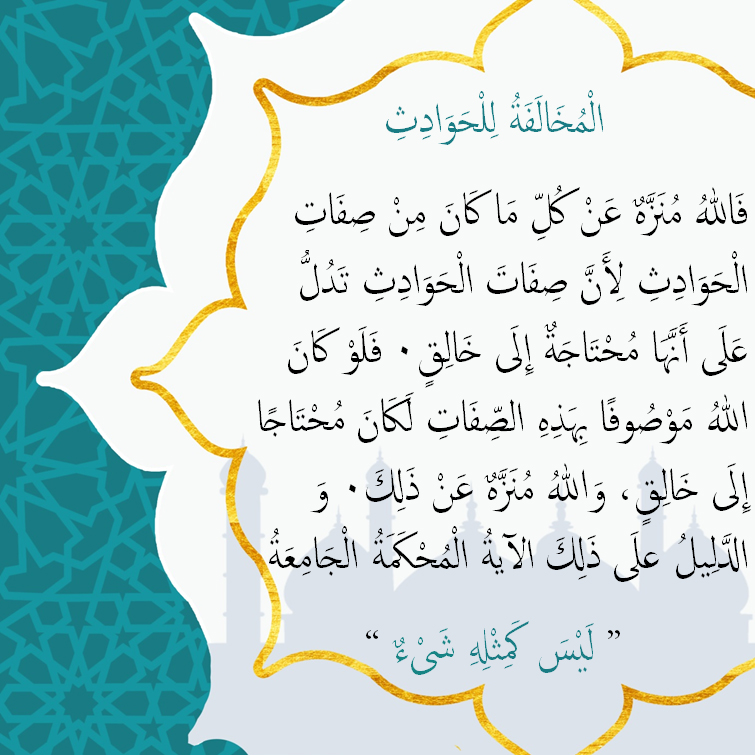 الْمُخَالَفَةُ لِلْحَوَادِثِ
فَاللهُ مُنَزَّهٌ عَنْ كُلِّ مَا كَانَ مِنْ صِفَاتِ
الْحَوَادِثِ لِأَنَّ صِفَاتَ الْحَوَادِثِ تَدُلُّ
عَلَى أَنَّهَا مُحْتَاجَةٌ إِلَى خَالِقٍ. فَلَوْ كَانَ
اللهُ مَوْصُوفًا بِهَذِهِ الصِّفَاتِ لَكَانَ مُحْتَاجًا
إِلَى خَالِقٍ، وَاللهُ مُنَزَّهٌ عَنْ ذَلِكَ. وَ
الدَّلِيلُ علَى ذَلِكَ الآيةُ الْمُحْكَمَةُ الْجَامِعَةُ
” لَيْسَ كَمِثْلِهِ شَىْءٌ “